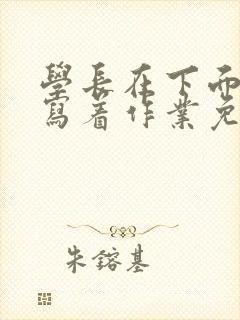 學長在下面
寫著作業免
朱鎔基